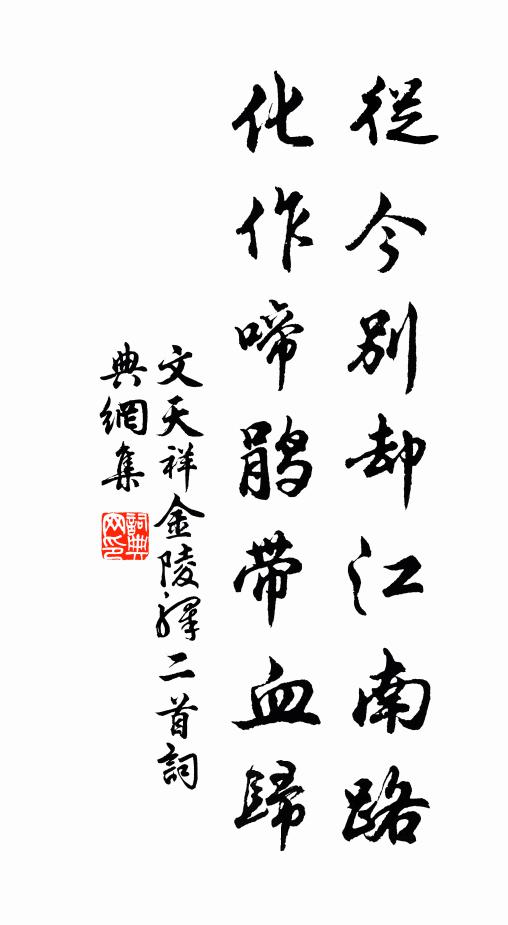 從今别却江南路
化作啼鹃帶血歸
文天祥金陵驛二首詞
典網集
詞典網印